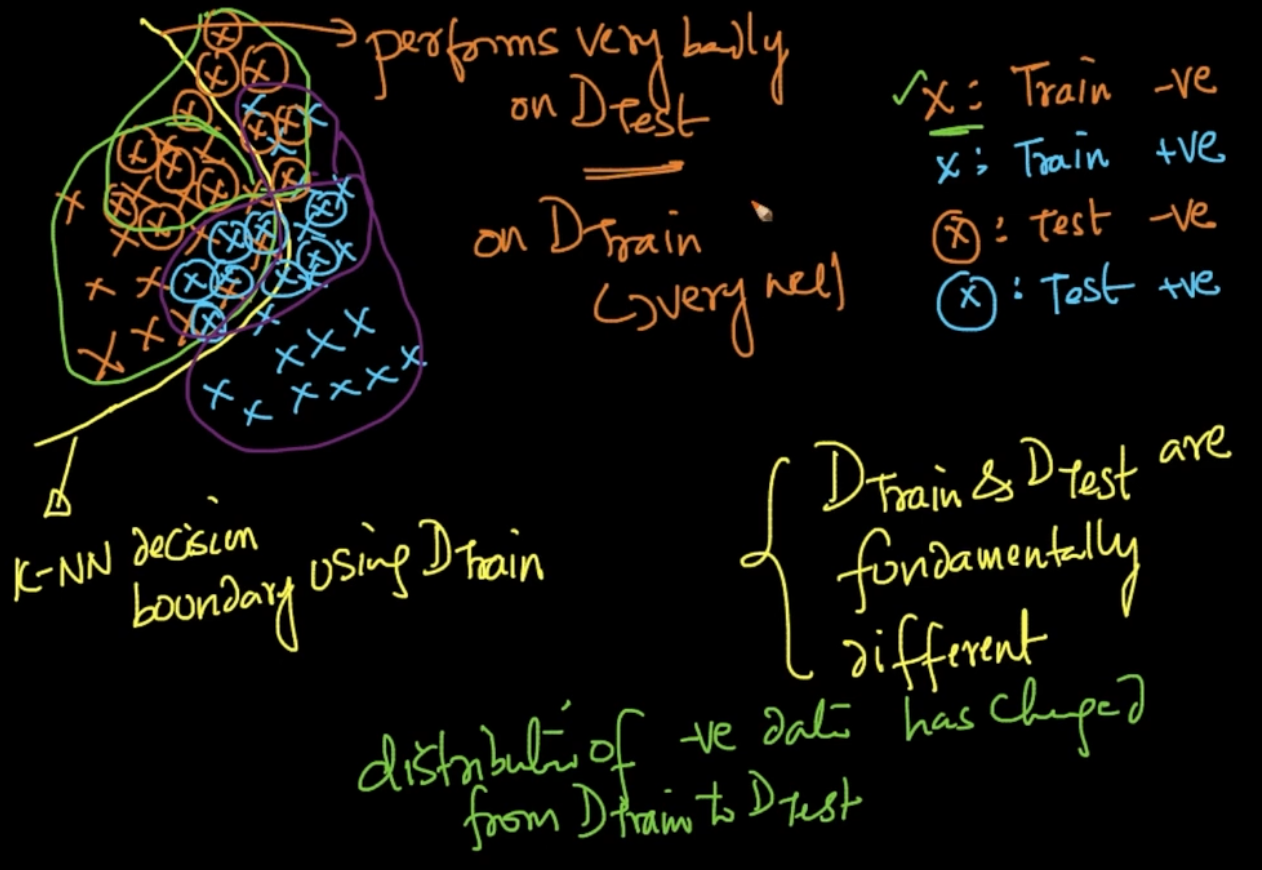 performs very badly
on DTest
on DTrain
(→very well)
✓x: Train -ve
x: Train +ve
ⓧ: Test -ve
ⓧ: Test +ve
K-NN decision
boundary using DTrain
DTrain & DTest are
fundamentally
different
of -ve data has changed
from DTrain to DTest